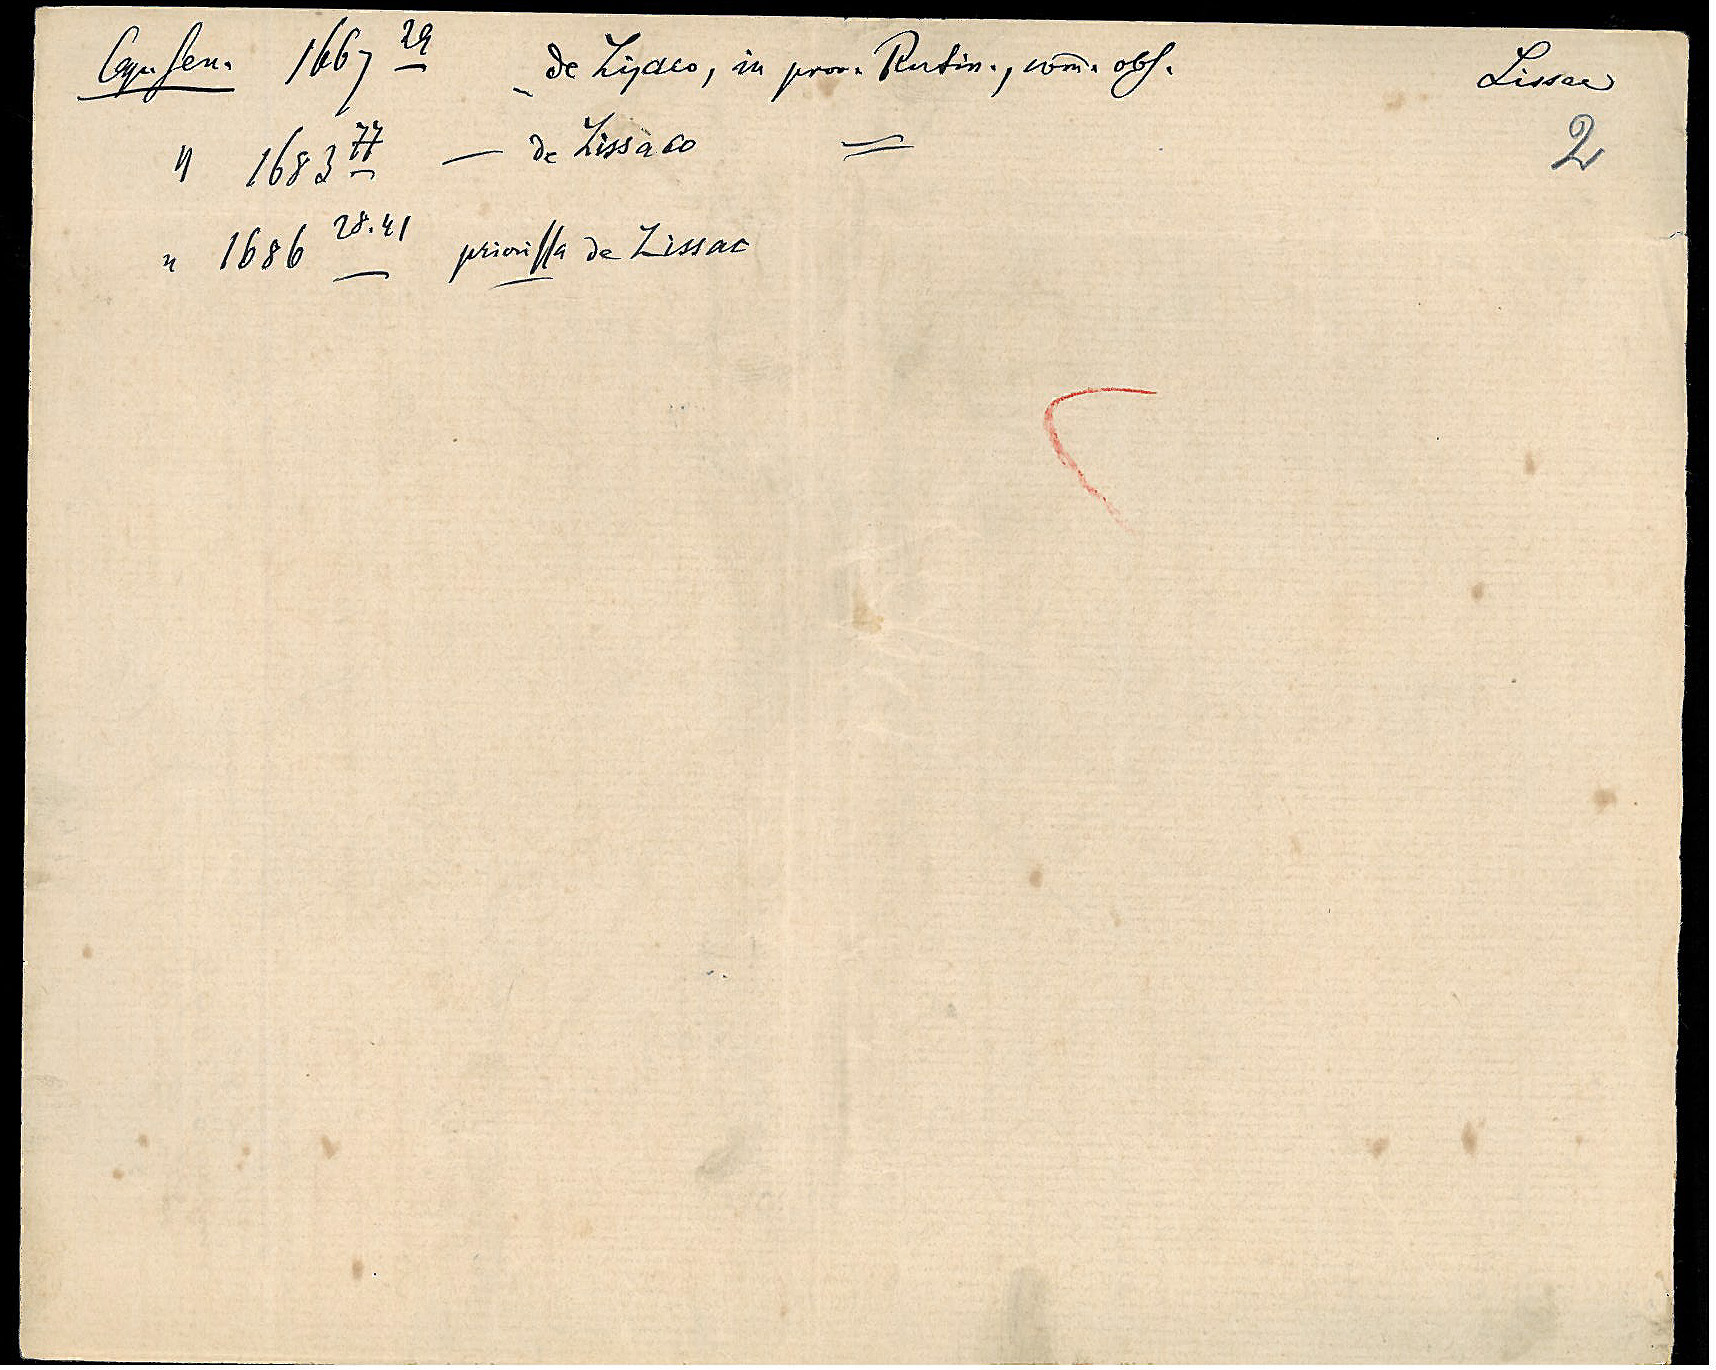 Cap. Gen. 1667 29 de Lissaco, in prov. Rutin., com̄. obs. Lissac
" 1683 77 — de Lissaco = 2
" 1686 28.41 priorissa de Lissac